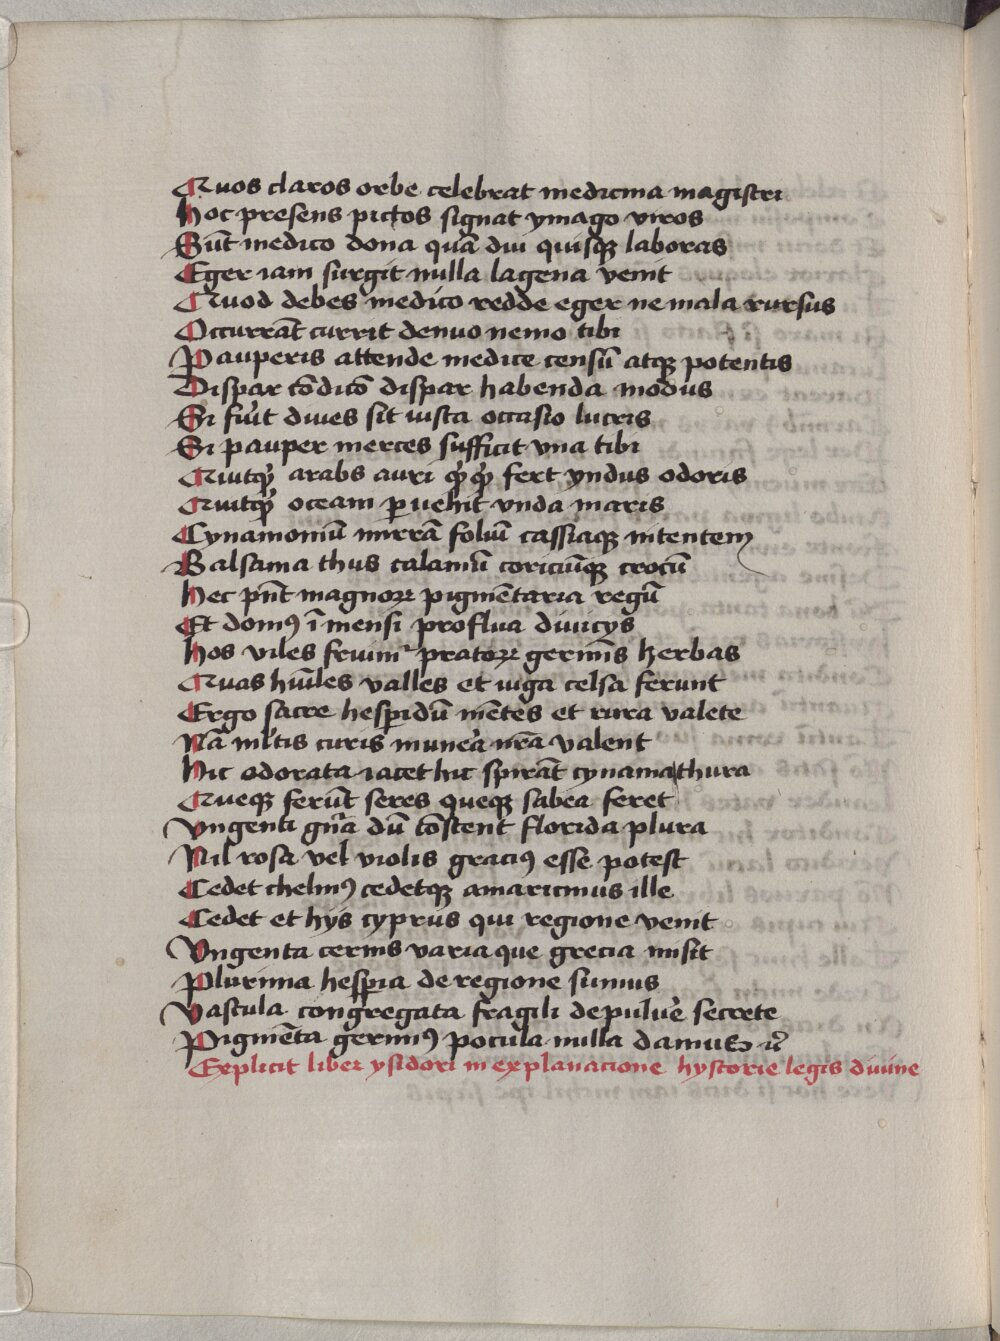 Quos claros orbe celebrat medicina magistri
Hoc presens pictos signat ymago viros
Sūt medico dona quā diu quisqꝫ laboras
Eger iam surgit nulla lagena venit
Quod debes medico redde eger ne mala rursus
Occurrāt currit denuo nemo tibi
Pauperis attende medice censū atqꝫ potentis
Dispar cōdicō dispar habenda modus
Si fuͥt dives sit iusta occasio lucris
Si pauper merces sufficit una tibi
Quitqͥd arabs auri qͥdqͥd fert yndus odoris
Quitqͥd oceam ꝑuehit unda maris
Cynamoniū mirrā foliū cassiaqꝫ nitentem
Balsama thus calamū coriciūqꝫ crocū
Hec pn̄t magnoꝝ pigmētaria regū
Et domꝰ īmensi proflua diuicys
Hos viles fruim᷑ pratoꝝ germīs herbas
Quas hūiles valles et iuga celsa ferunt
Ergo sacre hesperidū mētes et rura valete
Nā multis curis munera nr̄a valent
Hic odorata iacet hic spirāt cynama thura
Queqꝫ ferūt seres queqꝫ sabea feret
Vngenti gn̄a dū cōstent florida plura
Nil rosa vel violis graciꝰ esse potest
Cedet thelinꝰ cedetqꝫ amaricinus ille
Cedet et hys cyprus qui regione venit
Vngenta cernis varia que grecia misit
Plurima hesꝑia de regione sumus
Vascula congregata fragili de puluere secrete
Pigmēta gerimꝰ pocula nulla damus
Explicit liber ysidori in explanacione hystorie legis diuine